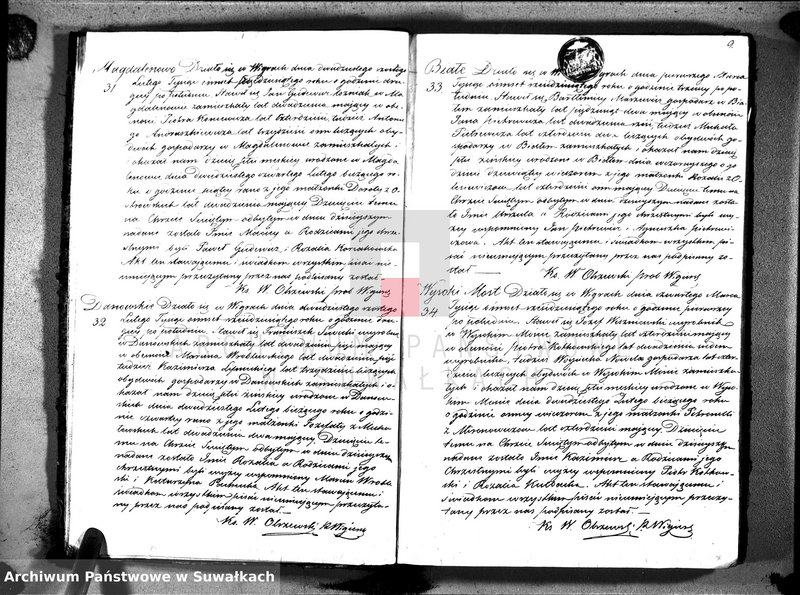 Magdalenowo Działo się w Wigrach dnia dwudziestego szóstego
31 Lutego Tysiąc ośmset sześdziesiątego roku o godzinie dru
giey po południu Stawił się Jan Gudewicz
gdalenowie zamieszkały lat dwadzieścia mający w obe
cności Piotra lat czterdzieści tudzież Antonie
go Andraszkiewicza lat trzydzieści ośm liczących oby
dwóch gospodarzy w Magdalenowie zamieszkałych i
okazał nam dziecię płci męskiej urodzone w Magda
lenowie dnia dwudziestego czwartego Lutego bieżącego ro
ku o godzinie piątey rano z jego małżonki Doroty z O
lat dwadzieścia mający Dziecięciu temu
na Chrzcie Świętym odbytym w dniu dzisiejszym
nadane zostało Imie Maciej a Rodzicami jego chrze
stnymi byli Paweł Gudewicz i Rozalia
Akt ten stawającemu i świadkom wszystkim pisać nie
umiejącym przeczytany przez nas podpisany został
Ks. W Olszewski prob Wigiers
Danowskie Działo się w Wigrach dnia dwudziestego szóstego
32 Lutego Tysiąc ośmset sześdziesiątego roku o godzinie
po południu. Stawił się Franciszek wyrobnik
w Danowskich zamieszkały lat dwadzieścia mający
w obecności Marcina Wróblewskiego lat dwadzieścia
tudzież Kazimierza Lipińskiego lat trzydzieści liczących
obydwóch gospodarzy w Danowskich zamieszkałych i o
kazał nam dziecię płci żeńskiej urodzone w Danow
skich dnia dwudziestego Lutego bieżącego roku o godzi
nie czwartey rano z jego małżonki z
lat dwadzieścia dwa mający. Dziecięciu te
mu na Chrzcie Świętym odbytym w dniu dzisiejszym
nadane zostało Imie Rozalia a Rodzicami jego
chrzestnymi byli wyżej wspomniony Marcin Wróble
wski i Katarzyna Akt ten stawającemu i
świadkom wszystkim pisać nieumiejącym przeczyta
ny przez nas podpisany został
Ks. W. Olszewski P. Wigiers
9
Białe Działo się w Wigrach dnia pierwszego Marca
33 Tysiąc ośmset sześdziesiątego roku o godzinie trzeciej po po
łudniu Stawił się Bartłomiej gospodarz w Bia
łem zamieszkały lat pięćdziesiąt dwa mający w obecności
Jana Piotrowicza lat dwadzieścia tudzież Michała
Pietrewicza lat czterdzieści dwa liczących obydwóch go
spodarzy w Białem zamieszkałych i okazał nam dziecię
płci żeńskiej urodzone w Białem dnia wczorajszego o go
dzinie dziewiątey wieczorem z jego małżonki Rozalii z O
lat czterdzieści ośm mający Dziecięciu temu na
Chrzcie Świętym odbytym w dniu dzisiejszym nadane zosta
ło Imie Urszula a Rodzicami jego chrzestnymi byli wy
żej wspomniony Jan Pietrewicz i Agnieszka Pietrewi
czowa. Akt ten stawającemu i świadkom wszystkim pi
sać nieumiejącym przeczytany przez nas podpisany zo
stał
Ks. W. Olszewski prob Wigiers
Wysoki Most Działo się w Wigrach dnia czwartego Marca
34 Tysiąc ośmset sześdziesiątego roku o godzinie pierwszey
po południu. Stawił się Józef wyrobnik
w Wysokim Moście zamieszkały lat czterdzieści mający
w obecności Piotra Kotkowskiego lat dwadzieścia siedem
wyrobnika, tudzież Wojciecha gospodarza lat czter
dzieści liczących obydwóch w Wysokim Moście zamieszka
łych i okazał nam dziecię płci męskiej urodzone w Wyso
kim Moście dnia dwudziestego Lutego bieżącego roku
o godzinie ósmey wieczorem z jego małżonki Petronelli
z lat czterdzieści mający Dziecięciu
temu na Chrzcie Świętym odbytym w dniu dzisiejszym
nadane zostało Imie Kazimierz a Rodzicami jego
Chrzestnymi byli wyżej wspomniony Piotr Kotkow
ski i Rozalia Akt ten stawającemu i
świadkom wszystkim pisać nieumiejącym przeczy
tany przez nas podpisany został
Ks W Olszewski P. Wigiers
Archiwum Państwowe w Suwałkach